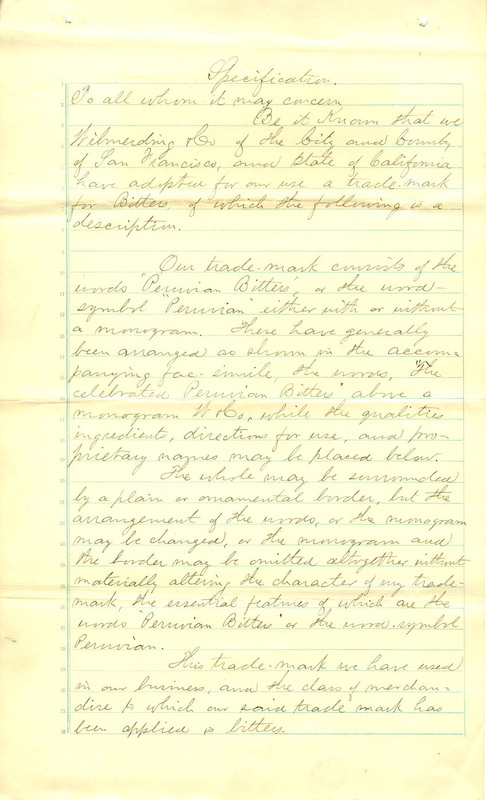 Specification.
To all whom it may concern
Be it Known that we
Wilmerding & Co of the City and County
of San Francisco, and State of California
have adopted for our use a trade-mark
for Bitters, of which the following is a
description.
Our trade-mark consists of the
words "Peruvian Bitters", or the word-
symbol "Peruvian" either with or without
a monogram. These have generally
been arranged as shown in the accom-
panying fac-simile, the words, "The
celebrated Peruvian Bitters" above a
monogram W & Co, while the qualities
ingredients, directions for use, and pro-
prietary names may be placed below.
The whole may be surrounded
by a plain or ornamental border, but the
arrangement of the words, or the monogram
may be changed, or the monogram and
the border may be omitted altogether without
materially altering the character of my trade-
mark, the essential features of which are the
words "Peruvian Bitters" or the word-symbol
Peruvian.
This trade-mark we have used
in our business, and the class of merchan-
dise to which our said trade mark has
been applied is bitters.